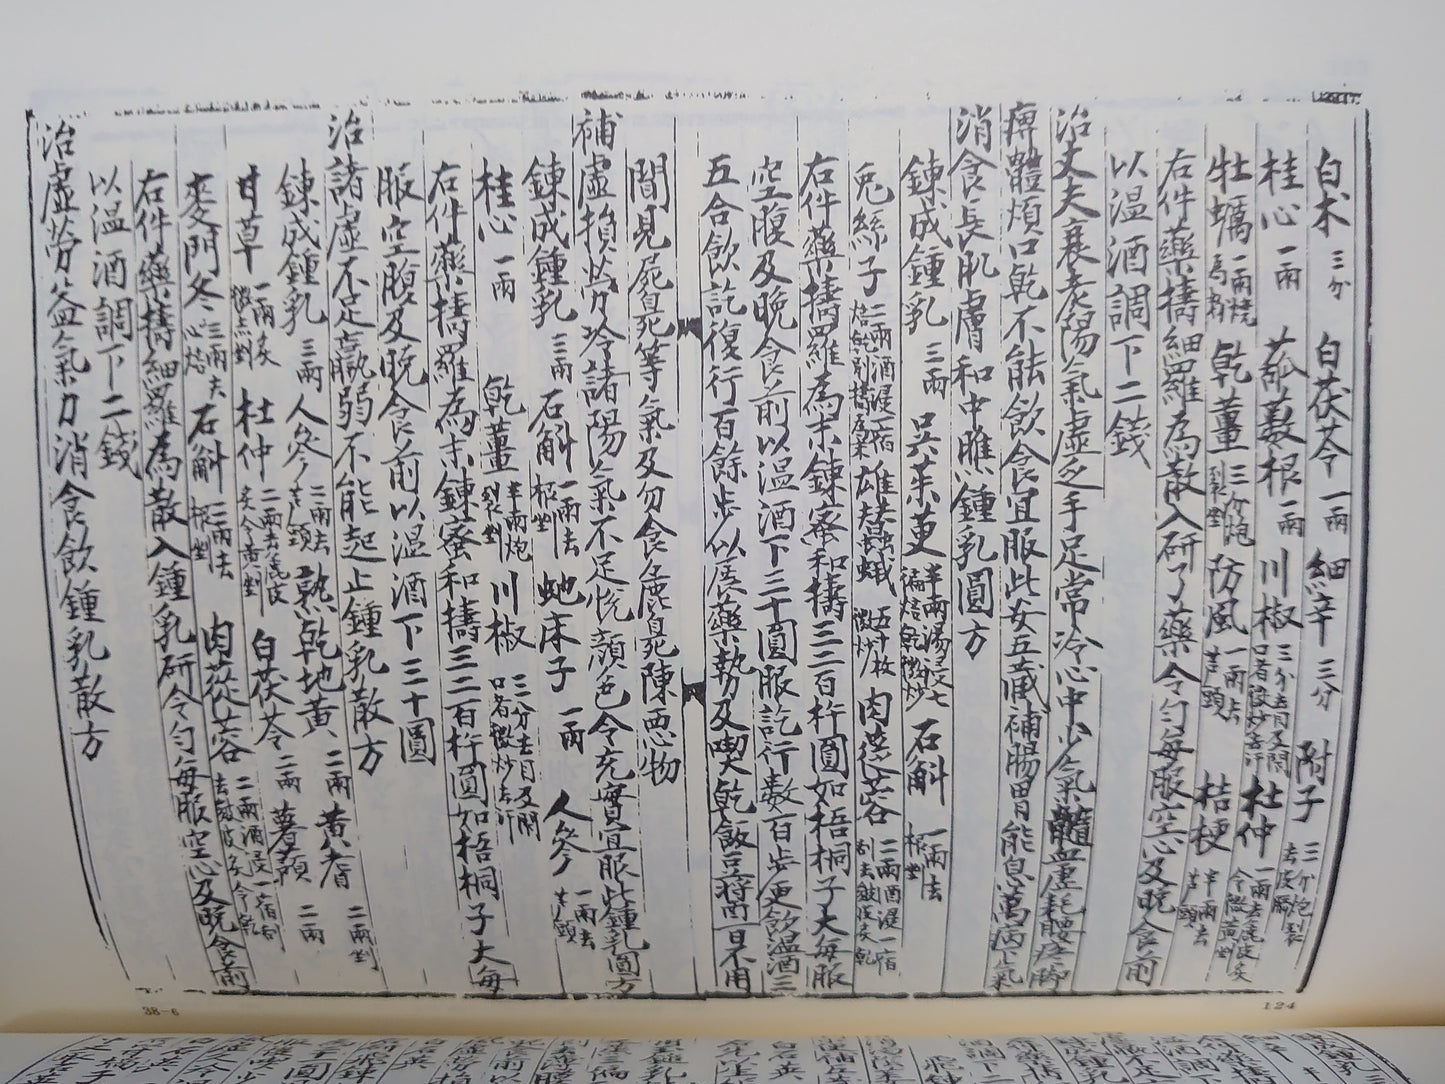 白术三分　白茯苓一兩　細辛三分　附子三分炮裂去皮臍
桂心一兩　蓏蔞根一兩　川椒三分去目及閉口者微炒去汗　杜仲一兩去麁皮炙令微黃剉
牡蠣一兩燒為粉　乾薑三分炮裂剉　防風一兩去蘆頭　桔梗半兩去蘆頭
右件藥擣細羅為散入研了藥令勻每服空心及晚食前
以温酒調下二錢
治丈夫衰老陽氣虛乏手足常冷心中少氣髓虛耗腰疼脚
痹體煩口乾不能飲食宜服此安五臟補腸胃能息萬病下氣
消食長肌膚和中䐃鍾乳圓方
鍊成鍾乳三兩　吳茱萸半兩湯浸七遍焙乾微炒　石斛一兩去根剉
兎絲子三兩酒浸一宿焙乾别擣為末　雄蠶蛾五十枚微炒　肉蓯蓉二兩酒浸一宿刮去皴皮炙乾
右件藥擣羅為末鍊蜜和擣三二百杵圓如梧桐子大每服
空腹及晚食前以温酒下三十圓服訖行數百步更飲温酒三
五合飲訖復行百餘步以展藥勢及喫乾飯豆醬一日不用
聞見屍臰等氣及勿食麁臰陳惡物
補虛損勞冷諸陽氣不足悅顔色令充實宜服此鍾乳圓方
鍊成鍾乳三兩　石斛一兩去根剉　虵床子一兩　人參一兩去蘆頭
桂心一兩　乾薑半兩炮裂剉　川椒三分去目及閉口者微炒去汗
右件藥擣羅為末鍊蜜和擣三二百杵圓如梧桐子大每
服空腹及晚食前以温酒下三十圓
治諸虛不足羸弱不能起止鍾乳散方
鍊成鍾乳三兩　人參二兩去蘆頭　熟乾地黃二兩　黃耆二兩剉
甘草一兩炙微赤剉　杜仲二兩去麁皮炙令黃剉　白茯苓二兩　薯蕷二兩
麥門冬三兩去心焙　石斛三兩去根剉　肉蓯蓉二兩酒浸一宿刮去皴皮炙令乾
右件藥擣細羅為散入鍾乳研令勻每服空心及晚食前
以温酒調下二錢
治虛勞益氣力消食飲鍾乳散方
38-6
124